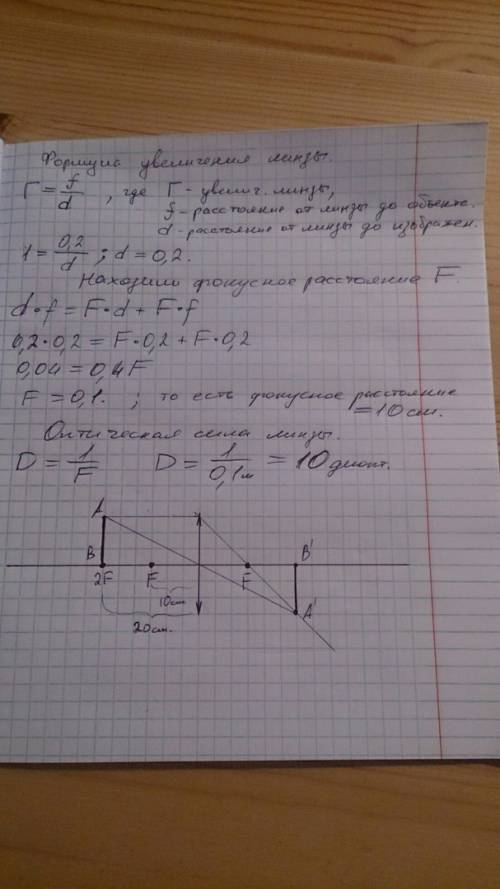 Формула увеличения линзы.
Г = f/d , где Г - увелич. линзы,
f - расстояние от линзы до объекта.
d - расстояние от линзы до изображен.
1 = 0,2/d ; d = 0,2.
Находим фокусное расстояние F.
d • f = F • d + F • f
0,2 • 0,2 = F • 0,2 + F • 0,2
0,04 = 0,4F
F = 0,1. ; то есть фокусное расстояние
= 10 см.
Оптическая сила линзы.
D = 1/F D = 1/0,1м = 10 диопт.
A
B B'
2F F F
10см
A'
20см.